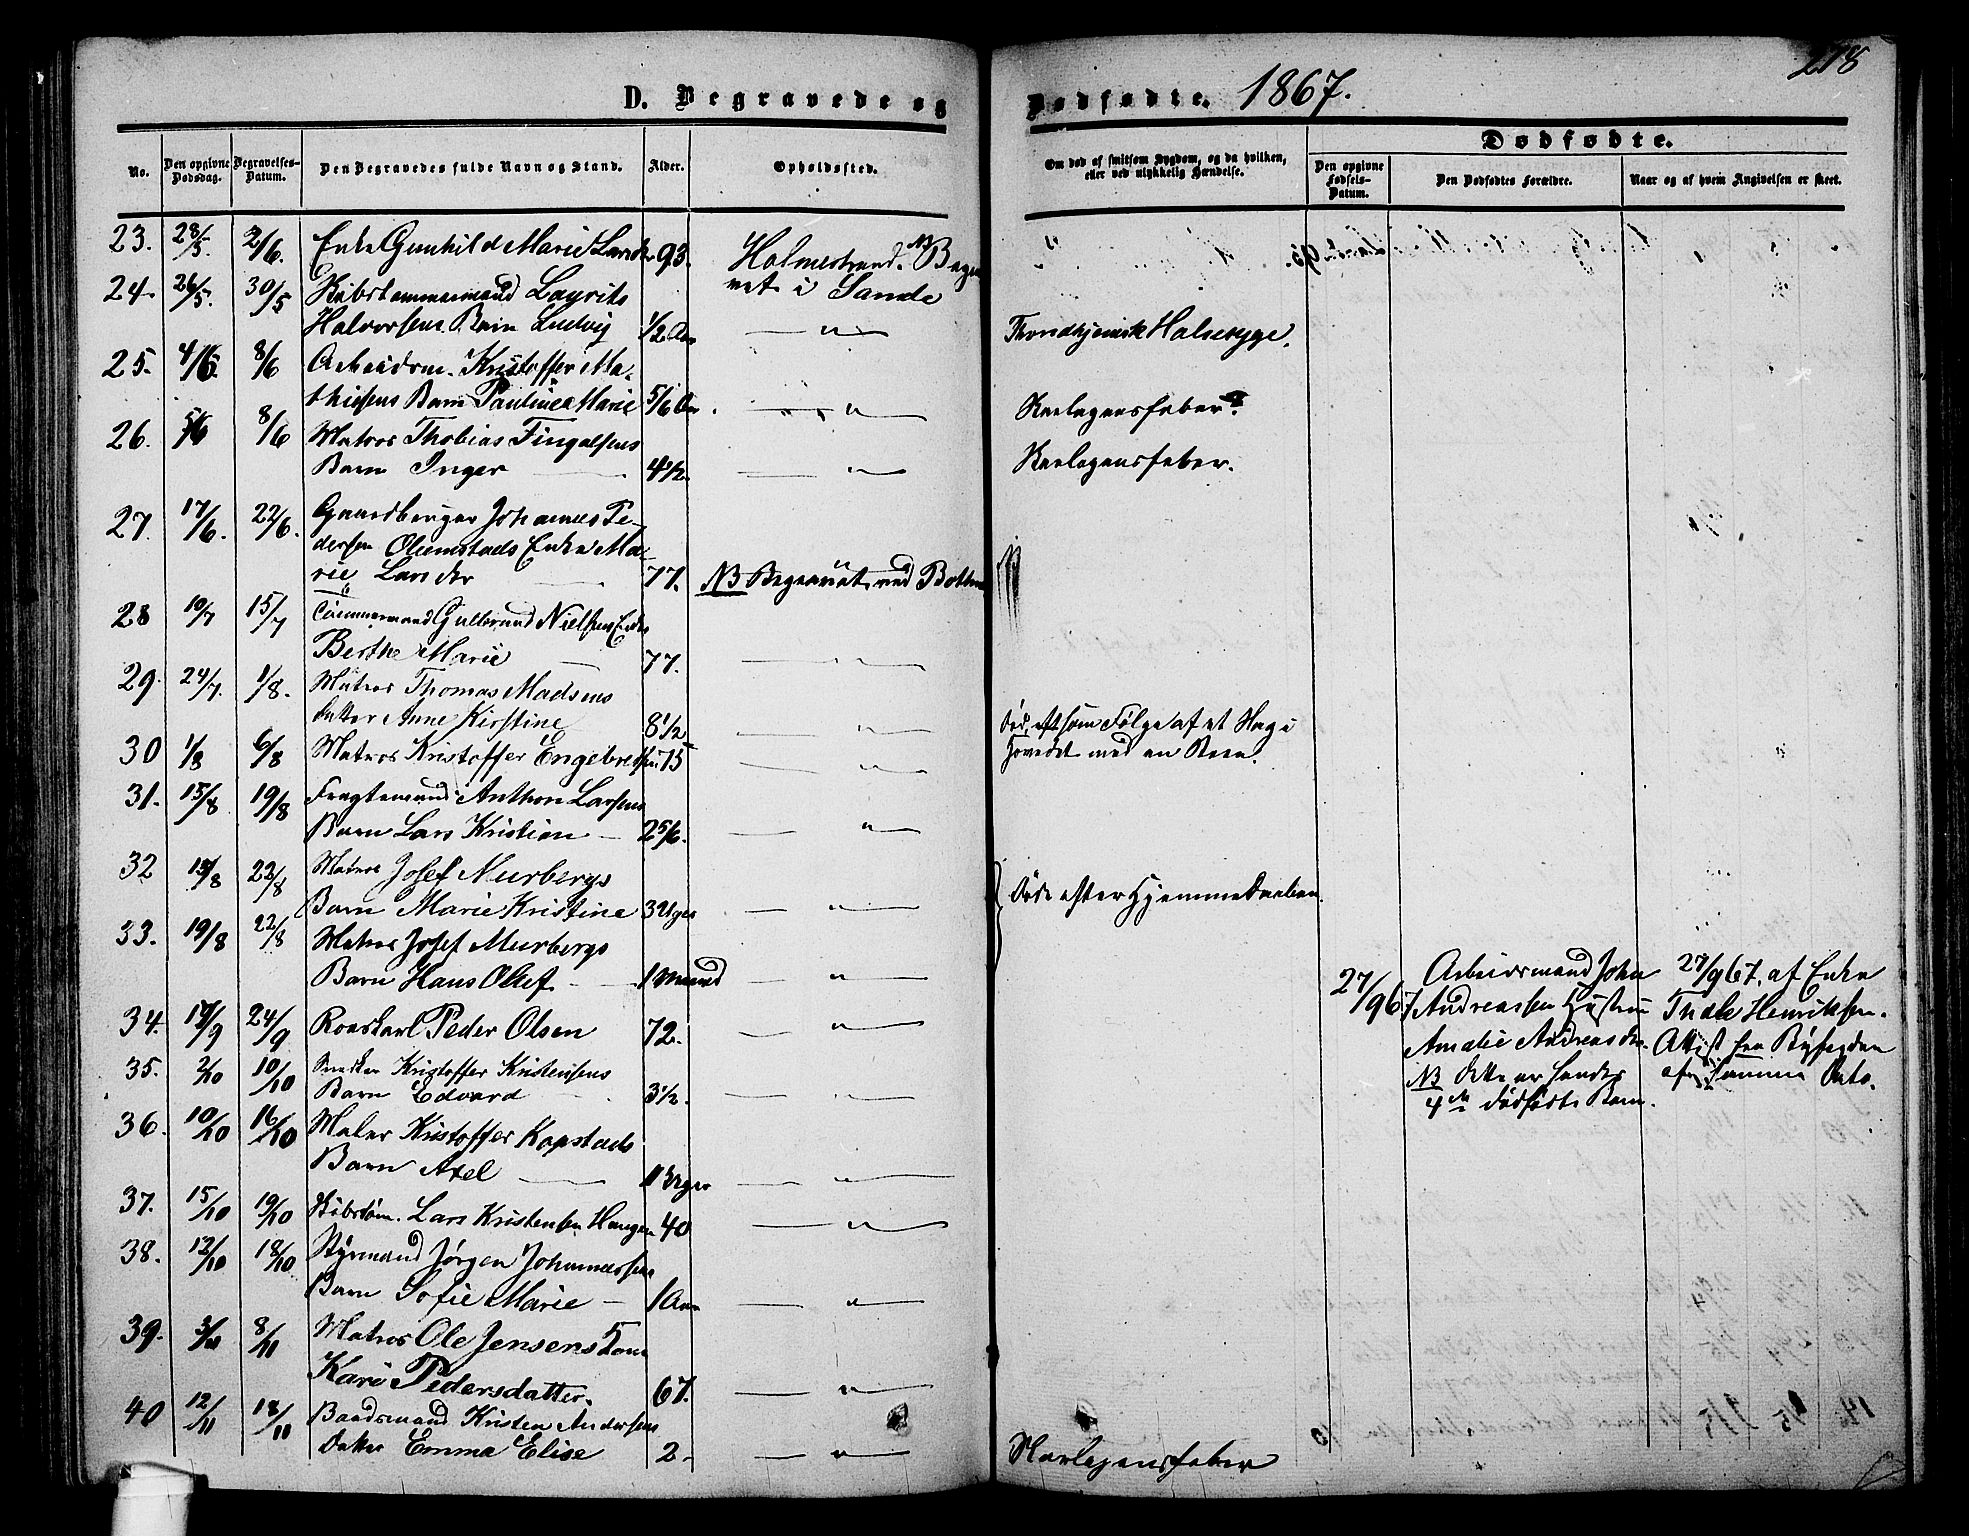 D. Begravede og
Dødfødte. 1867.
218
No.
Den opgivne Dødsdag.
Begravelses-Datum.
Den Begravedes fulde Navn og Stand.
Alder.
Opholdssted.
Om død af smitsom Sygdom, og da hvilken,
eller ved ulykkelig Hændelse.
Dødfødte.
Den opgivne Fødsels-Datum.
Den Dødfødtes Forældre.
Naar og af hvem Angivelsen er skeet.
23. 28/5. 2/6. Enke Gunhild Marie 93. Holmestrand. NB Begra
24. 26/5. 30/5 Laurits vet i Sande
Halvorsens Barn Ludvig 1/2 Aar — " — Throndhjemsk Halssyge.
25. 4/6. 8/6 Arbeidsm. Kristoffer Ma-
thisens Barn Pauline Marie 5/6 Aar. — " — Skarlagensfeber.
26. 5/6 8/6 Matros Thobias Fingalsens
Barn Inger 4 1/2. — " — Skarlagensfeber.
27. 17/6. 22/6. Gaardbruger Johannes Pe-
dersen Enke Ma-
rie Larsdtr 77. NB Begravet ved Botne
28 10/7 15/7 Tømmermand Gulbrand Nielsens Enke
Berthe Marie 77. — " —
29. 24/7. 1/8. Matros Thomas Madsens
Datter Anne Kirstine 8 1/2 — " — Død som Følge af et Slag i
30 1/8 6/8 Matros Kristoffer Engebretsen 75 — " — Hovedet med en Steen.
31. 15/8 19/8 Fragtemand Anthon Larsens
Barn Lars Kristian — 2 5/6. — " —
32 22/8 Matros Josef Murbergs
Barn Marie Kristine 3 Uger — " — Døde efter Hjemmedaaben.
33. 19/8 22/8 Matros Josef Murbergs
Barn Hans Olaf — 1 Maaned — " —
34. 17/9 24/9 Peder Olsen 72. — " —
35. 2/10 10/10 Kristoffer Kristensens
Barn Edvard 3 1/2. — " —
36. 10/10 16/10 Maler Kristoffer Kopstads
Barn Axel 11 Uger — " —
37. 15/10 19/10 Lars Kristensen Haugen 40 — " —
38. 12/10 18/10 Styrmand Jørgen Johannessens
Barn Sofie Marie — 1 Aar — " —
39. 8/11 Matros Ole Jensens Kone
Kari Pedersdatter. 67. — " —
40 12/11 18/11 Baadsmand Kristen Andersens
Datter Emma Elise 2 — " — Skarlagensfeber
27/9 67 Arbeidsmand John
Andreassen Hustru
Amalie Andreasdtr.
NB Dette er hendes
4de dødfødte Barn.
27/9 67. af Enke
Thale Henriksen.
Attest fra Byfogden
af samme Dato.